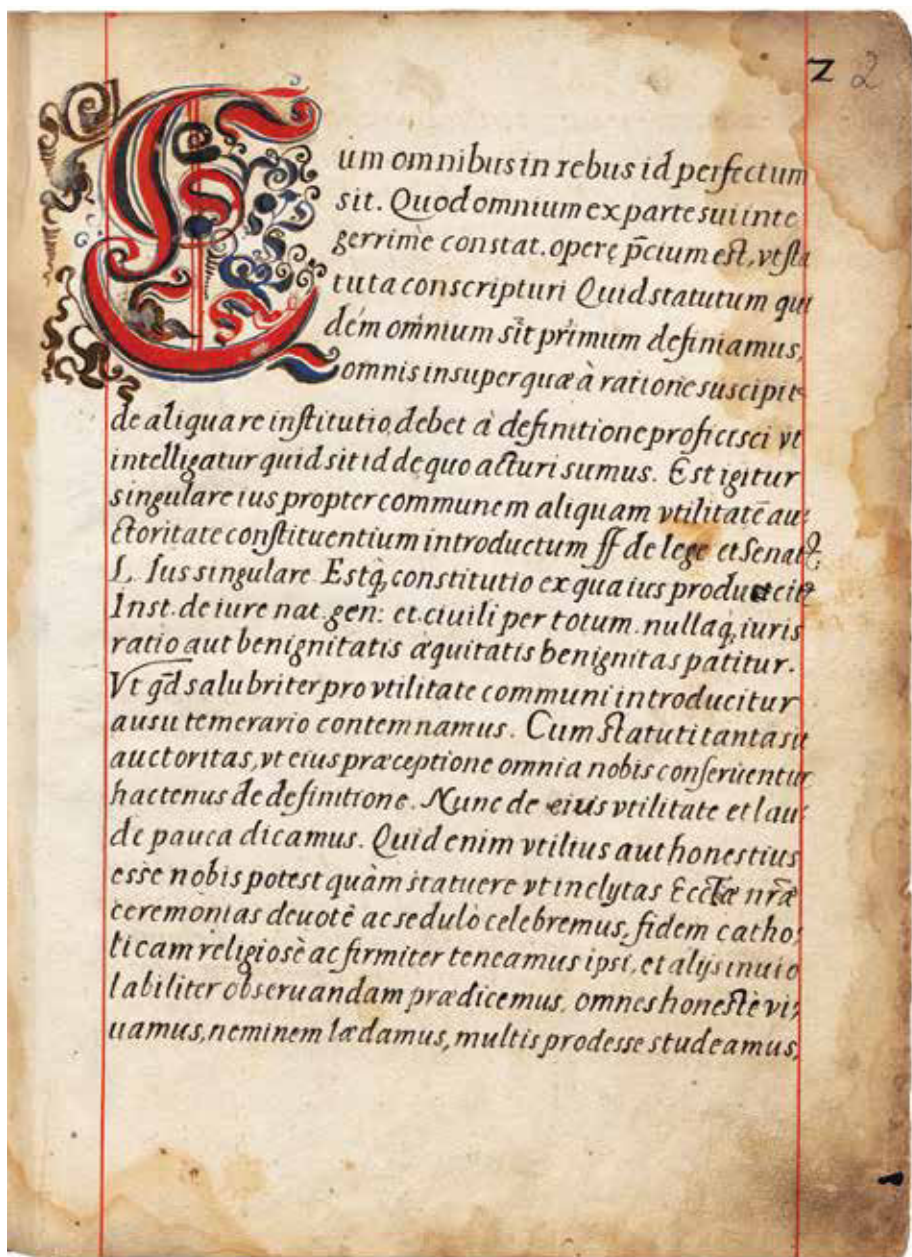 2 2
Cum omnibus in rebus id perfectum
sit. Quod omnium ex parte sui inte
gerrimè constat. operę p̃cium est, vt sta
tuta conscripturi Quid statutum qui
dem omnium sit primum definiamus,
omnis insuper quæ à ratione suscipit
de aliqua re institutio, debet à definitione proficisci vt
intelligatur quid sit id de quo acturi sumus. Est igitur
singulare ius propter communem aliquam vtilitatẽ au:
ctoritate constituentium introductum ff de lege et Senat
L. Ius singulare. Estq́; constitutio ex qua ius
Inst. de iure nat. gen: et ciuili per totum. nullaq́; iuris
ratio aut benignitatis æquitatis benignitas patitur.
Vt q̃d salubriter pro vtilitate communi introducitur
ausu temerario contemnamus. Cum statuti tanta sit
auctoritas, vt eius præceptione omnia nobis conseruentur
hactenus de definitione. Nunc de eius vtilitate et lau:
de pauca dicamus. Quid enim vtilius aut honestius
esse nobis potest quàm statuere vt inclytas Eccl̃æ nr̃æ
ceremonias deuotè ac sedulò celebremus, fidem catho:
licam religiosè ac firmiter teneamus ipsi, et alijs inuio
labiliter obseruandam prædicemus, omnes honestè vi:
uamus, neminem lædamus, multis prodesse studeamus,